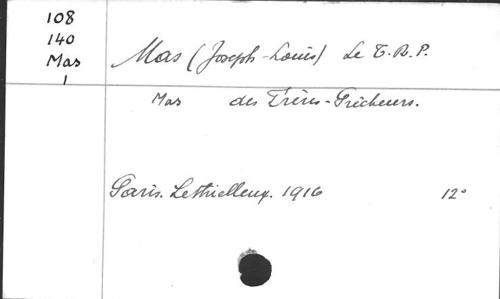 108
140
Mas
1
Mas (Joseph-Louis) Le T.R.P.
Mas des Frères-Prêcheurs.
Paris. Lethielleux. 1916 12°